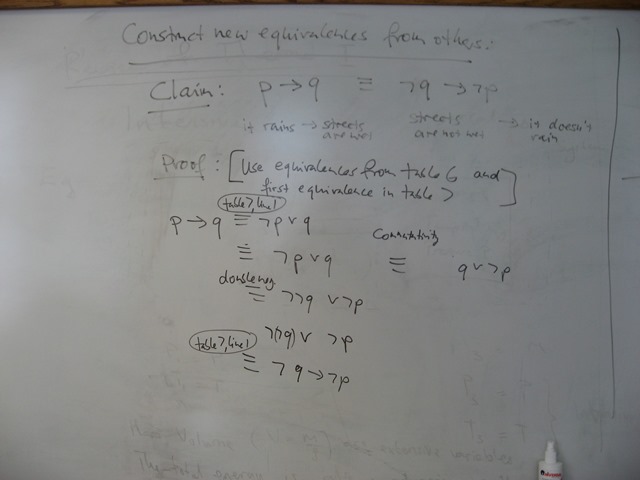 Construct new equivalences from others:
Claim: p → q ≡ ¬q → ¬p
it rains → streets are wet streets are not wet → it doesn't rain
Proof: [Use equivalences from table 6 and
first equivalence in table 7]
table 7, line 1
p → q ≡ ¬p ∨ q
commutativity
≡ ¬p ∨ q ≡ q ∨ ¬p
double neg
≡ ¬¬q ∨ ¬p
¬(¬q) ∨ ¬p
table 7, line 1
≡ ¬q → ¬p
Volume
extensive variables